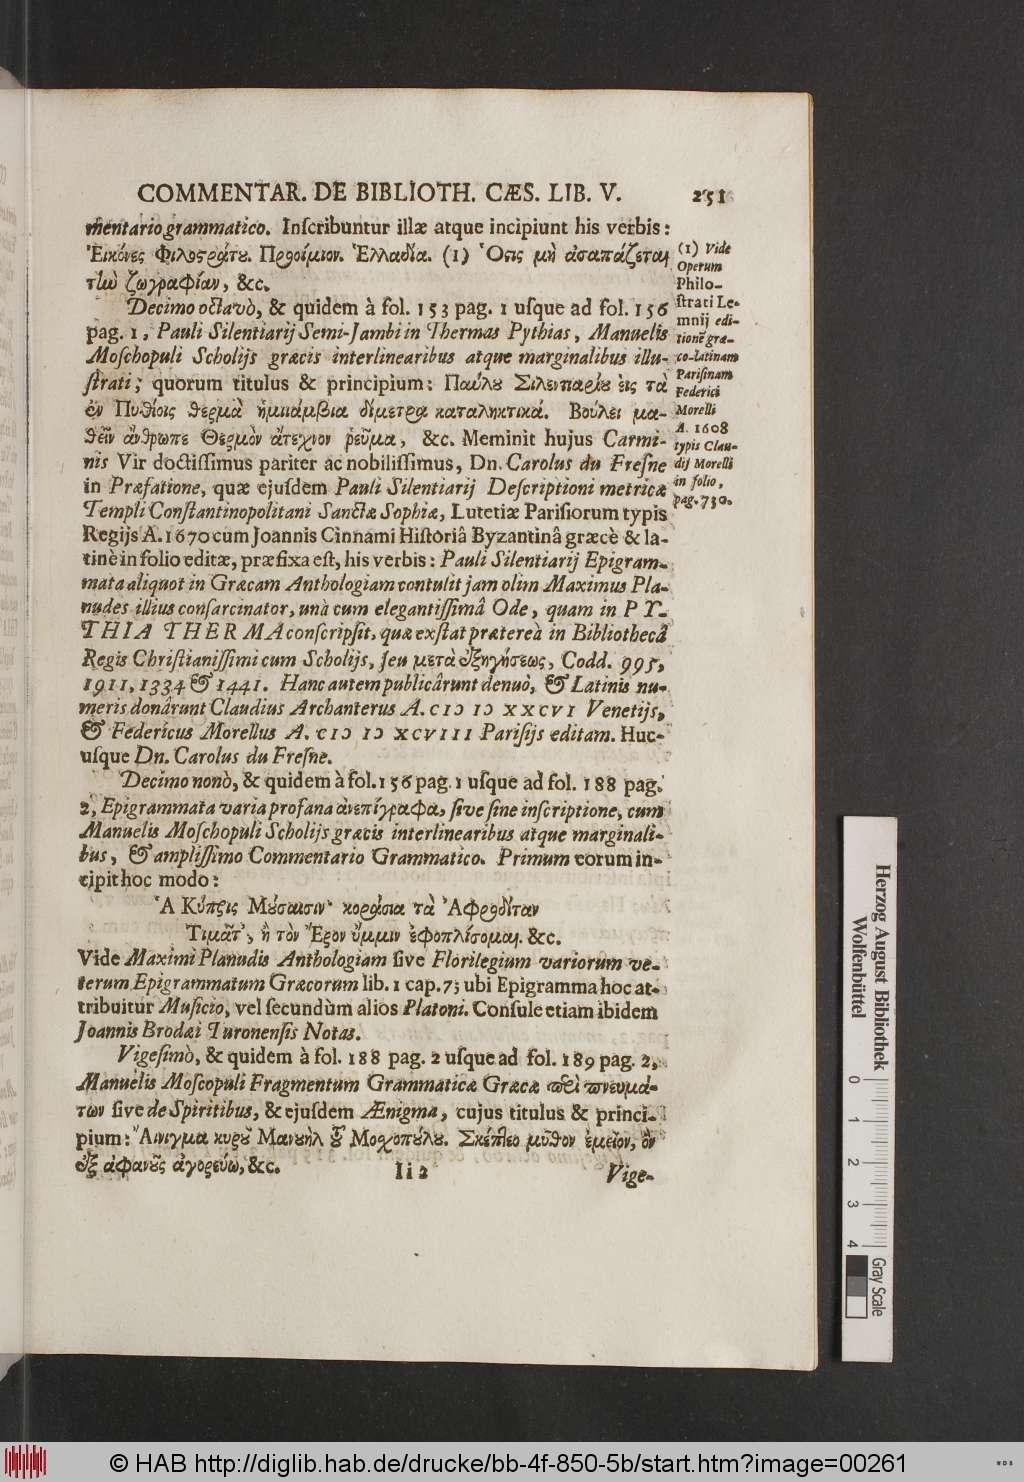 COMMENTAR. DE BIBLIOTH. CÆS. LIB. V. 251
mentario grammatico. Inſcribuntur illæ atque incipiunt his verbis:
Ἐικόνες Φιλοςράτȣ. Προοίμιον. Ἑλλαδία. (1) Ὅςις μὴ ἀσπάζεται
τὴν ζωγραφίαν, &c.
Decimo octavò, & quidem à fol. 153 pag. 1 uſque ad fol. 156
pag. 1, Pauli Silentiarij Semi-Jambi in Thermas Pythias, Manuelis
Moſchopuli Scholijs græcis interlinearibus atque marginalibus illu-
ſtrati; quorum titulus & principium: Παύλȣ Σιλεντιαρίȣ ἐις τὰ
ἐν Πυθίοις θερμὰ ἡμιάμβια δίμετρα καταληκτικά. Βούλει μα-
θεῖν ἄνθρωπε Θερμὸν ἄτεχνον ῥεῦμα, &c. Meminit hujus Carmi-
nis Vir doctiſſimus pariter ac nobiliſſimus, Dn. Carolus du Freſne
in Præfatione, quæ ejuſdem Pauli Silentiarij Deſcriptioni metricæ
Templi Conſtantinopolitani Sanctæ Sophiæ, Lutetiæ Pariſiorum typis
Regijs A. 1670 cum Joannis Cinnami Hiſtoriâ Byzantinâ græcè & la-
tinè in folio editæ, præfixa eſt, his verbis: Pauli Silentiarij Epigram-
mata aliquot in Græcam Anthologiam contulit jam olim Maximus Pla-
nudes illius conſarcinator, unà cum elegantiſſimâ Ode, quam in PY-
THIA THERMA conſcripſit, quæ exſtat prætereà in Bibliothecâ
Regis Chriſtianiſſimi cum Scholijs, ſeu μετὰ ἐξηγήσεως, Codd. 995,
1911, 1334 & 1441. Hanc autem publicârunt denuò, & Latinis nu-
meris donârunt Claudius Archanterus A. CIↃ IↃ XXCVI Venetijs,
& Federicus Morellus A. CIↃ IↃ XCVIII Pariſijs editam. Huc-
uſque Dn. Carolus du Freſne.
Decimo nonò, & quidem à fol. 156 pag. 1 uſque ad fol. 188 pag.
2, Epigrammata varia profana ἀνεπίγραφα, ſive ſine inſcriptione, cum
Manuelis Moſchopuli Scholijs græcis interlinearibus atque marginali-
bus, & ampliſſimo Commentario Grammatico. Primum eorum in-
cipit hoc modo:
Ἁ Κύπρις Μȣσαισιν· κοράσια τὰ Ἀφροδίταν
Τιμᾶτ', ἢ τὸν Ἔρον ὔμμιν ἐφοπλίσομαι. &c.
Vide Maximi Planudis Anthologiam ſive Florilegium variorum ve-
terum Epigrammatum Græcorum lib. 1 cap. 7; ubi Epigramma hoc at-
tribuitur Muſicio, vel ſecundùm alios Platoni. Conſule etiam ibidem
Joannis Brodæi Turonenſis Notas.
Vigeſimò, & quidem à fol. 188 pag. 2 uſque ad fol. 189 pag. 2,
Manuelis Moſcopuli Fragmentum Grammaticæ Græcæ περὶ πνευμά-
των ſive de Spiritibus, & ejuſdem Ænigma, cujus titulus & princi-
pium: Ἄινιγμα κυρȣ Μανȣὴλ τȣ Μοσχοπόλȣ. Σκέπτεο μῦθον ἐμεῖον, ὃν
ἐξ ἀφανȣς ἀγορεύω, &c.
Ii 2 Vige-
(1) Vide
Operum
Philo-
ſtrati Le-
mnij edi-
tionē græ-
co-latinam
Pariſinam
Federici
Morelli
A. 1608
typis Clau-
dij Morelli
in folio,
pag. 730.
Herzog August Bibliothek
Wolfenbüttel
0 1 2 3 4
Gray Scale
© HAB http://diglib.hab.de/drucke/bb-4f-850-5b/start.htm?image=00261